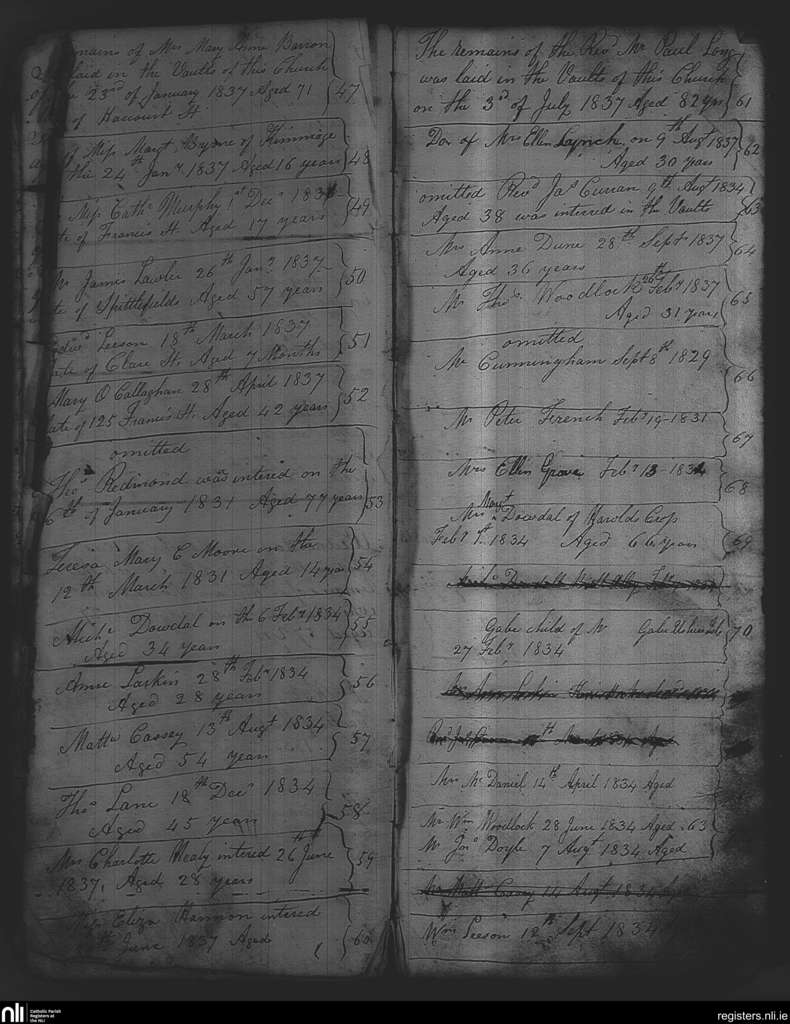 mains of Mrs Mary Anne Barron
laid in the Vaults of this Church
23rd of January 1837 Aged 71 47
of Harcourt St
Miss Margt Byrne of Kimmage
the 24th Jany 1837 Aged 16 years 48
Miss Cathe Murphy 1st Decr 183
te of Francis St. Aged 17 years 49
Mr James Lawler 26th Jany 1837
te of Spittlefields Aged 57 years 50
Leeson 18th March 1837
te of Clare St. Aged 7 Months 51
Mary O Callaghan 28th April 1837
late of 125 Francis St. Aged 42 years 52
omitted
Thos Redmond was intered on the
6th of January 1831 Aged 77 years 53
Teresa Mary C Moore on the
12th March 1831 Aged 14 years 54
Dowdal on the 6 Feby 1834
Aged 34 years 55
Anne Larkin 28th Feby 1834
Aged 28 years 56
Mattw Cassey 13th Augt 1834
Aged 54 years 57
Thos Lane 18th Decr 1834
Aged 45 years 58
Mrs Charlotte Mealy intered 26th June
1837, Aged 28 years 59
Eliza Harmon intered
June 1837 Aged 60
The remains of the Revd Mr Paul Long
was laid in the Vaults of this Church
on the 3rd of July 1837 Aged 82 yrs 61
Do of Mrs Ellen Lynch on 9th Augt 1837
Aged 30 years 62
omitted Revd Jas Curran 9th Augt 1834
Aged 38 was interred in the Vaults 63
Mrs Anne Dune 28th Septr 1837
Aged 36 years 64
Mr Woodlock 26th Feby 1837
Aged 31 years 65
omitted
Mr Cunningham Sept 8th 1829 66
Mr Peter Ffrench Feby 19-1831 67
Mrs Ellen Grove Feby 13-1834 68
Mrs Margt Dowdal of Harolds Cross
Feby 1st 1834 Aged 66 years 69
Gabe child of Mr Gabe
27 Feby 1834 70
Mrs Mc Daniel 14th April 1834 Aged
Mr Wm Woodlock 28 June 1834 Aged 63
Mr Jos Doyle 7 Augt 1834 Aged
Mr Mattw Cassy 14 Augt 1834
Wm Leeson 12th Sept 1834
nli
Catholic Parish
Registers at
the NLI
registers.nli.ie